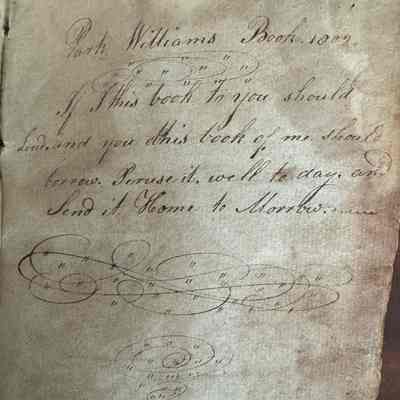 Park Williams Book. 1802.
If I this book to you should
Lend, and you this book of me should
borrow. Peruse it, well to day, and
Send it Home to Morrow.